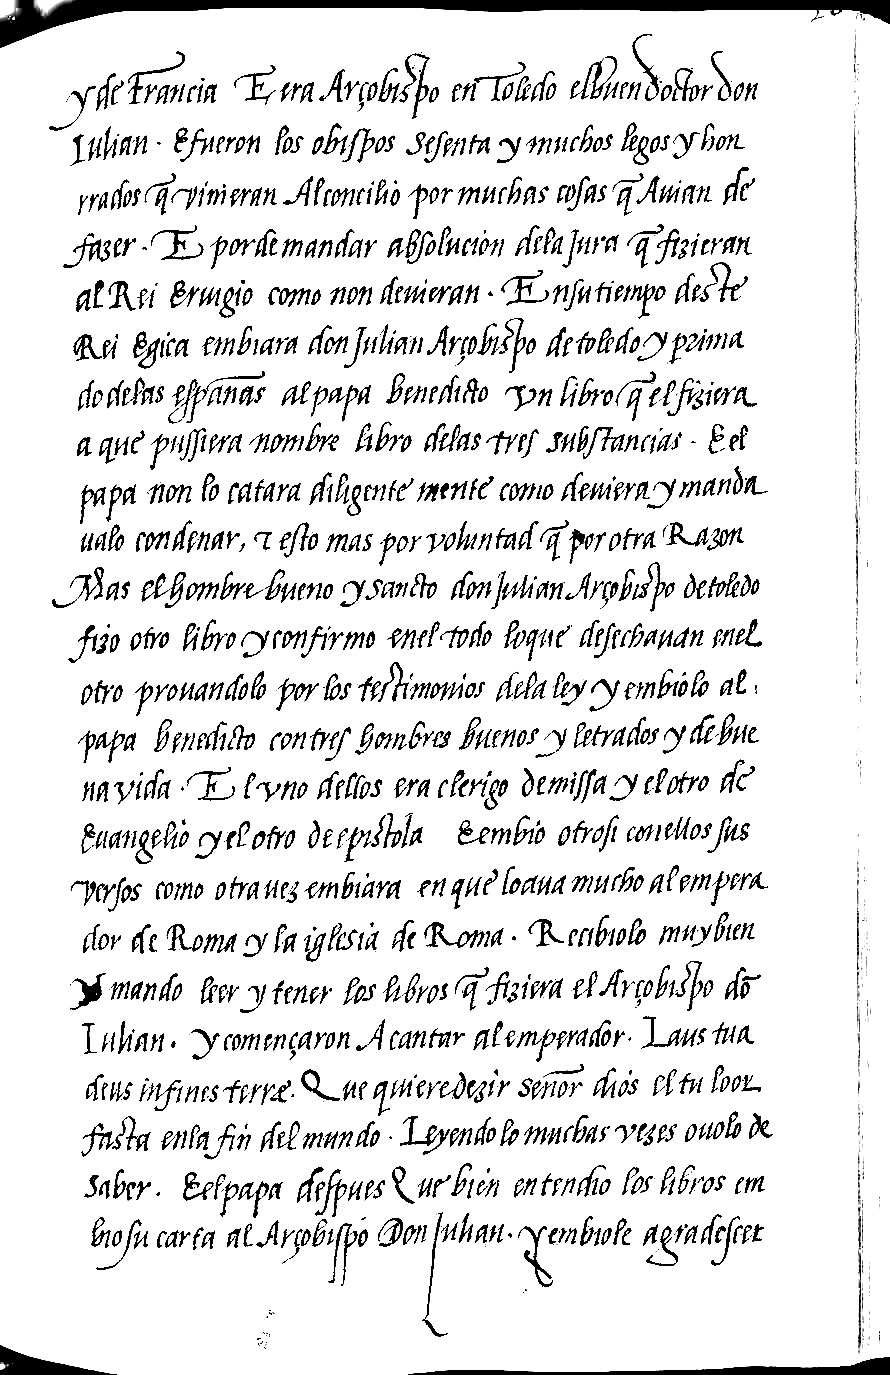 y de Francia E era Arçobispo en Toledo el buen doctor don
Iulian · E fueron los obispos sesenta y muchos legos y hon
rrados q̃ vinieran Al concilio por muchas cosas q̃ Auian de
fazer · E por demandar absolucion de la Jura q̃ fizieran
al Rei Eruigio como non deuieran · En su tiempo deste
Rei Egica embiara don Julian Arçobispo de toledo y prima
do delas espanas al papa benedicto vn libro q̃ el fiziera
a que pussiera nombre libro delas tres substancias · E el
papa non lo catara diligente mente como deuiera y manda
ualo condenar, τ esto mas por voluntad q̃ por otra Razon
Mas el hombre bueno y sancto don Julian Arçobispo de toledo
fizo otro libro y confirmo enel todo loque desechauan enel
otro prouandolo por los testimonios dela ley y embiolo al
papa benedicto con tres hombres buenos y letrados y de bue
na vida · E l vno dellos era clerigo de missa y el otro de
Euangelio y el otro de epistola E embio otrosi con ellos sus
versos como otra uez embiara en que loaua mucho al empera
dor de Roma y la iglesia de Roma · Recibiolo muy bien
y mando leer y tener los libros q̃ fiziera el Arçobispo dõ
Iulian · y començaron A cantar al emperador · Laus tua
deus in fines terræ · Que quiere dezir señor dios el tu loor
fasta enla fin del mundo · Leyendo lo muchas vezes ouolo de
saber · E el papa despues Que bien entendio los libros em
bio su carta al Arçobispo Don Julian · y embiole agradescer